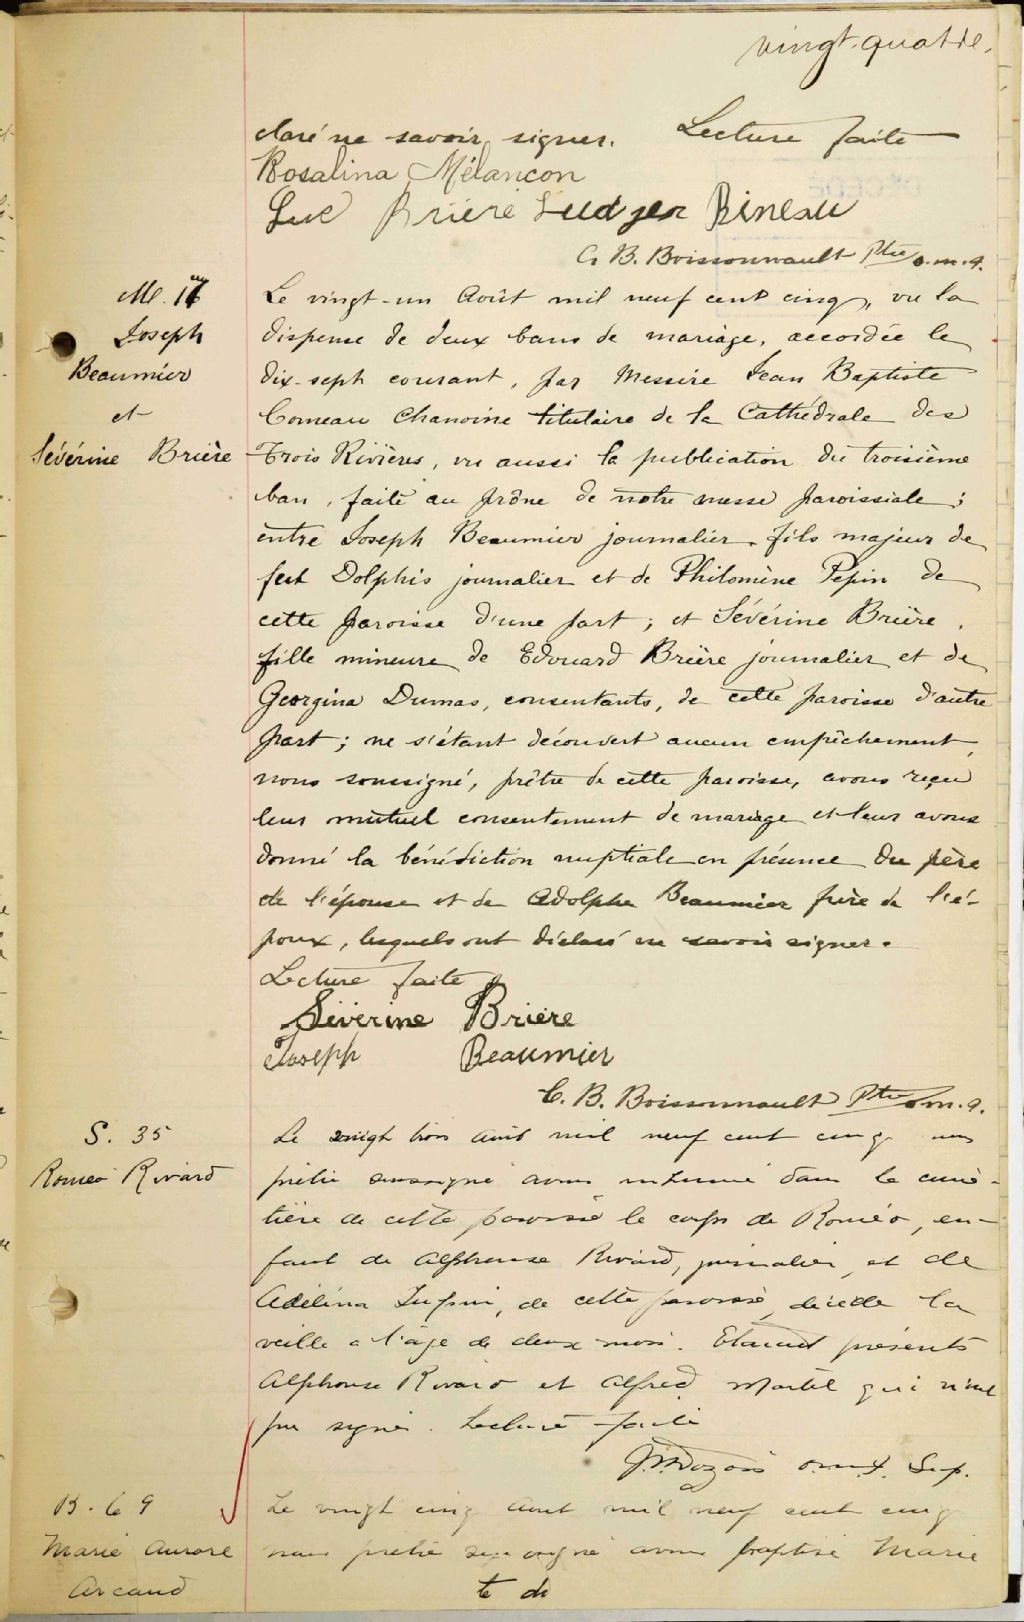 vingt-quatre.
claré ne savoir signer. Lecture faite
Rosalina Mélancon
Luc Brière Ludger Bineau
C. B. Boissonnault Ptre o.m.i.
M. 17
Joseph
Beaumier
et
Sévérine Brière
Le vingt-un Août mil neuf cent cinq, vu la
dispense de deux bans de mariage, accordée le
dix-sept courant, par Messire Jean Baptiste
Comeau Chanoine titulaire de la Cathédrale des
Trois Rivières, vu aussi la publication du troisième
ban, faite au prône de notre messe paroissiale;
entre Joseph Beaumier journalier, fils majeur de
feu Dolphis journalier et de Philomène Pepin de
cette paroisse d'une part; et Sévérine Brière,
fille mineure de Edouard Brière journalier et de
Georgina Dumas, consentants, de cette paroisse d'autre
part; ne s'étant découvert aucun empêchement,
nous soussigné, prêtre de cette paroisse, avons reçu
leur mutuel consentement de mariage et leur avons
donné la bénédiction nuptiale en présence du père
de l'épouse et de Adolphe Beaumier frère de l'é-
poux, lesquels ont déclaré ne savoir signer.
Lecture faite
Séverine Brière
Joseph Beaumier
C. B. Boissonnault Ptre o.m.i.
S. 35
Roméo Rivard
Le vingt trois août mil neuf cent cinq nous
prêtre soussigné avons inhumé dans le cime-
tière de cette paroisse le corps de Roméo, en-
fant de Alphonse Rivard, journalier, et de
Adélina, de cette paroisse, décédé la
veille a l'âge de deux mois. Etaient présents
Alphonse Rivard et Alfred Martel qui n'ont
pu signer. Lecture faite
Dozois o.m.i. Sup.
B. 69
Marie Aurore
Arcand
Le vingt cinq août mil neuf cent cinq
nous prêtre soussigné avons baptisé Marie
te de